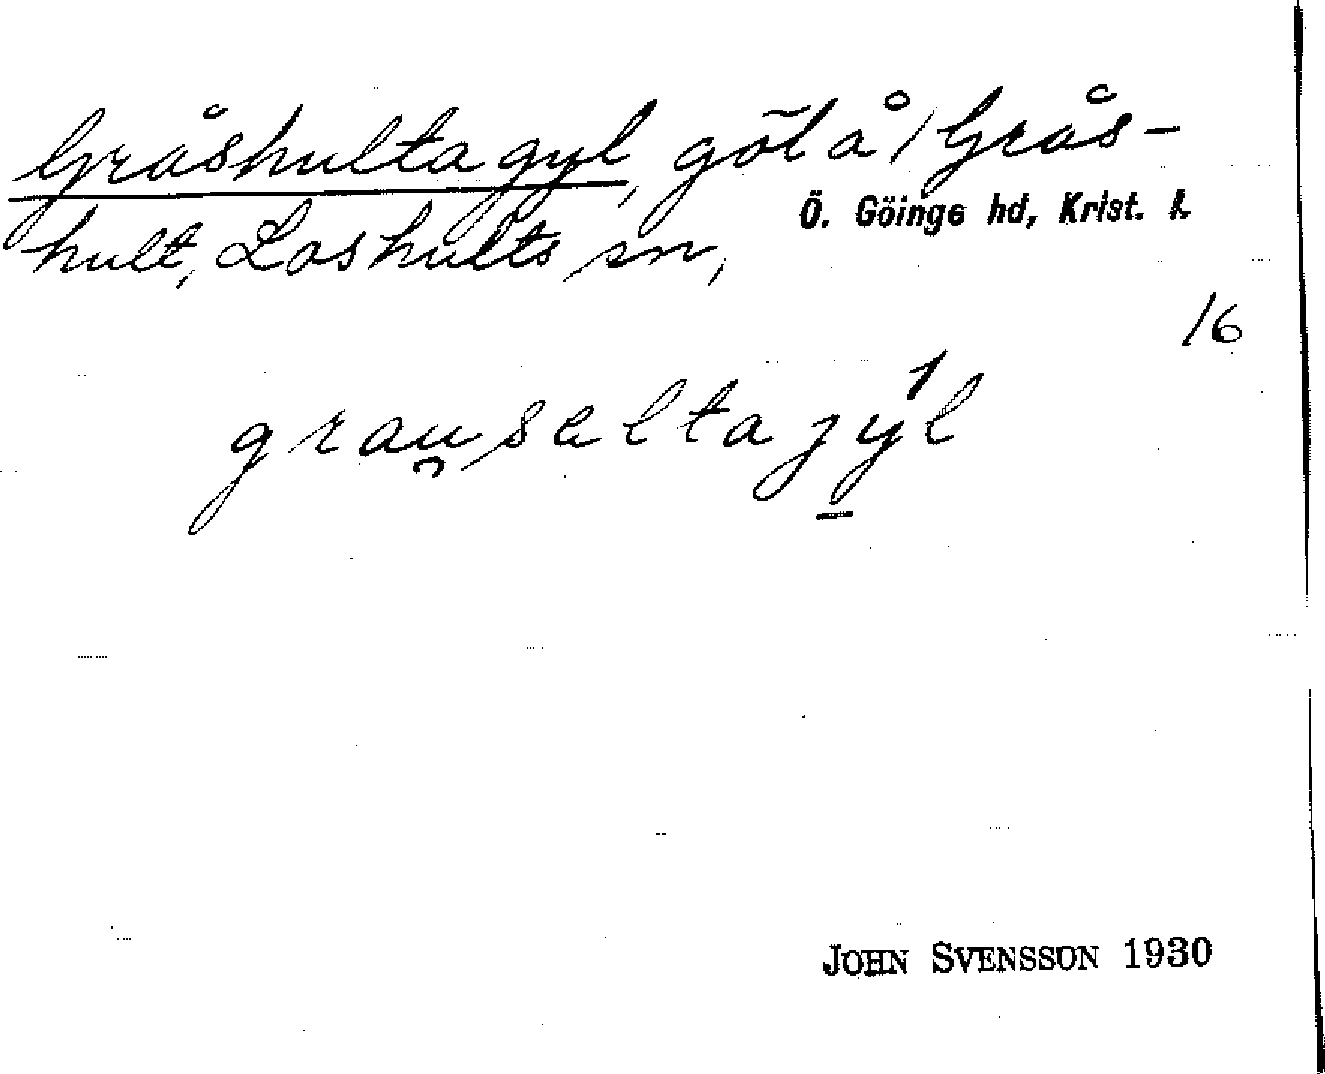 Gråshultagyl, göl å /Grås-
hult, Loshults sn, Ö. Göinge hd, Krist. l.
16
grau̯sæltagý̠l
JOHN SVENSSON 1930